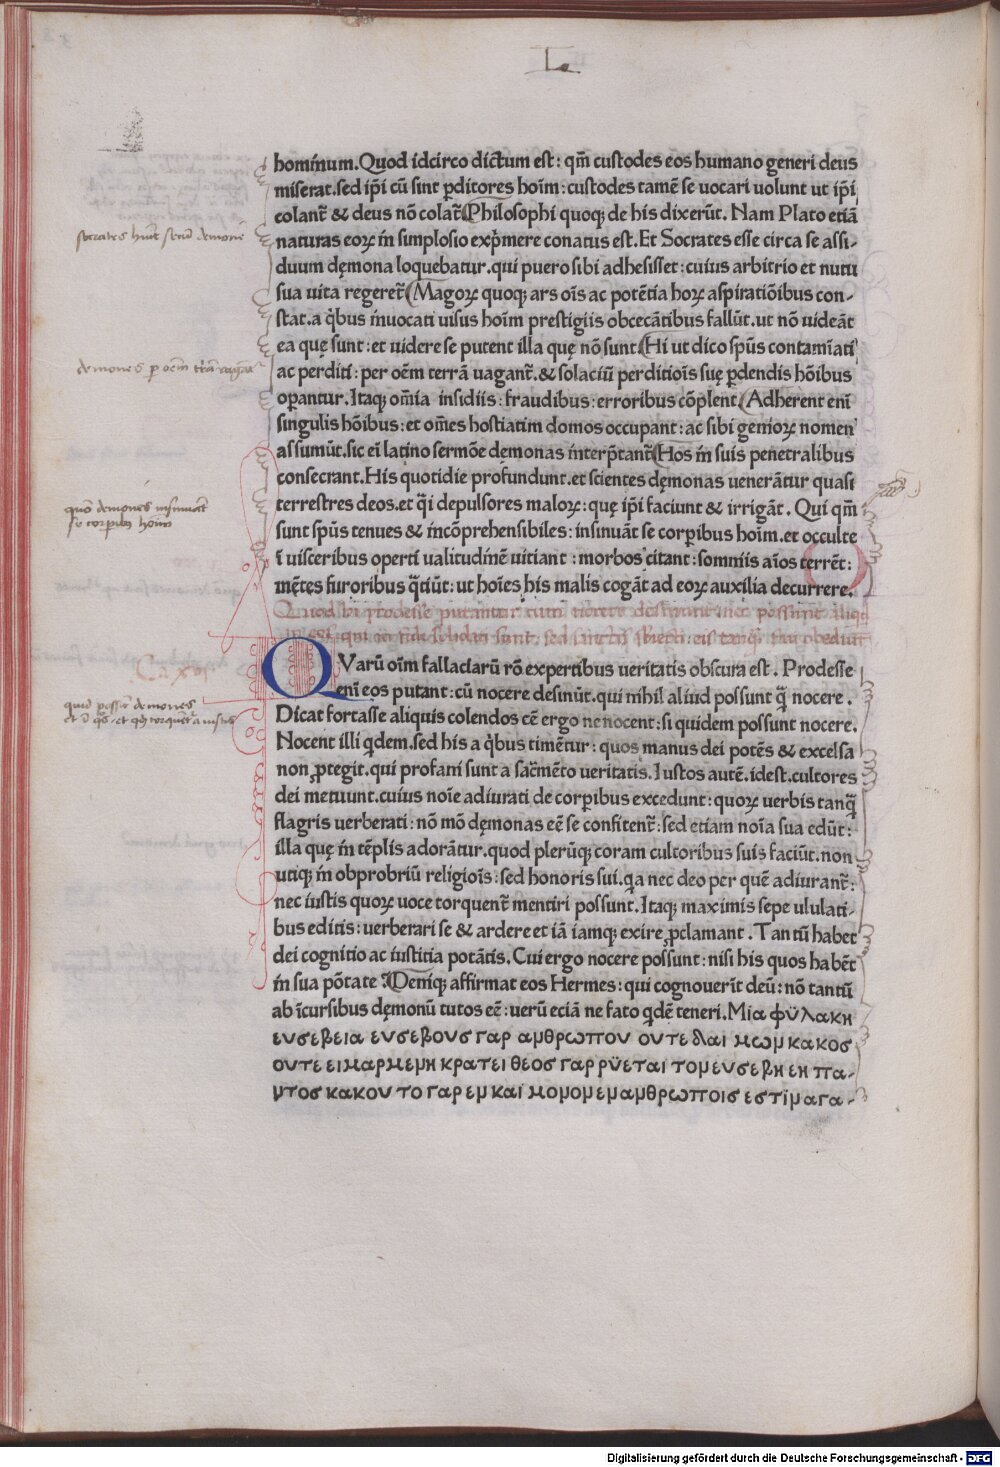 hominum. Quod idcirco dictum est: qm̄ custodes eos humano generi deus
miserat. sed ip̄i cū sint p̱ditores hoīm: custodes tamē se uocari uolunt ut ip̄i
colant᷑ & deus nō colat᷑. Philosophi quoqꝫ de his dixerūt. Nam Plato etiā
naturas eoꝝ in simplosio exp̄mere conatus est. Et Socrates esse circa se assi-
duum dęmona loquebatur. qui puero sibi adhesisset: cuius arbitrio et nutu
sua uita regeret᷑. Magoꝝ quoqꝫ ars oīs ac potētia hoꝝ aspiratiōibus con-
stat. a q̇bus inuocati uisus hoīm prestigiis obcecātibus fallūt. ut nō uideāt
ea quę sunt: et uidere se putent illa quę nō sunt. Hi ut dico sp̄us contamīati
ac perditi: per oēm terrā uagant᷑. & solaciū perditioīs suę p̱dendis hōibus
op̱antur. Itaqꝫ om̄ia insidiis: fraudibus: erroribus cōplent. Adherent enī
singulis hōibus: et om̄es hostiatim domos occupant: ac sibi genioꝝ nomen
assumūt. sic eī latino sermōe dęmonas interp̄tant᷑. Hos in suis penetralibus
consecrant. His quotidie profundunt. et scientes dęmonas uenerātur quasi
terrestres deos. et q̄i depulsores maloꝝ: quę ip̄i faciunt & irrigāt. Qui qm̄
sunt sp̄us tenues & incōprehensibiles: insinuāt se corp̱ibus hoīm. et occulte
ī uisceribus operti ualitudinē uitiant: morbos citant: somniis aīos terrēt:
mętes furoribus q̄tiūt: ut hoīes his malis cogāt ad eoꝝ auxilia decurrere.
Quod hi prodesse putantur cum nocere desinunt nec possunt
Qvarū oīm fallaciarū rō expertibus ueritatis obscura est. Prodesse
enī eos putant: cū nocere desinūt. qui nihil aliud possunt q̄ nocere.
Dicat fortasse aliquis colendos eē ergo ne nocent: si quidem possunt nocere.
Nocent illi q̇dem. sed his a q̇bus timētur: quos manus dei potēs & excelsa
non ꝓtegit. qui profani sunt a sac̄mēto ueritatis. Iustos autē. idest. cultores
dei metuunt. cuius noīe adiurati de corp̱ibus excedunt: quoꝝ uerbis tanq̄
flagris uerberati: nō mō dęmonas eē se confitent᷑: sed etiam noīa sua edūt:
illa quę in tēplis adorātur. quod plerūqꝫ coram cultoribus suis faciūt. non
utiqꝫ in obprobriū religioīs: sed honoris sui. q̇a nec deo per quē adiurant᷑:
nec iustis quoꝝ uoce torquent᷑ mentiri possunt. Itaqꝫ maximis sepe ululati-
bus editis: uerberari se & ardere et iā iamqꝫ exire ꝓclamant. Tantū habet
dei cognitio ac iustitia potātis. Cui ergo nocere possunt: nisi his quos habēt
in sua pōtate? Deniqꝫ affirmat eos Hermes: qui cognouerīt deū: nō tantū
ab īcursibus dęmonū tutos eē: uerū eciā ne fato q̇dē teneri. Μια φυλακη
ευσεβεια ευσεβουσ γαρ ανθρωπου ουτε δαιμων κακοσ
ουτε ειμαρμενη κρατει θεοσ γαρ ρυεται τον ευσεβη εη πα-
ντοσ κακου το γαρ εν και μονον εν ανθρωποισ εστιν αγα-
socrates hūit secū demonē
demones p̱ oēm t̄rā uagant᷑
quō demones insinuāt
se corpibꝫ hoīm
Ca xvi
quid possē demones
Digitalisierung gefördert durch die Deutsche Forschungsgemeinschaft - DFG